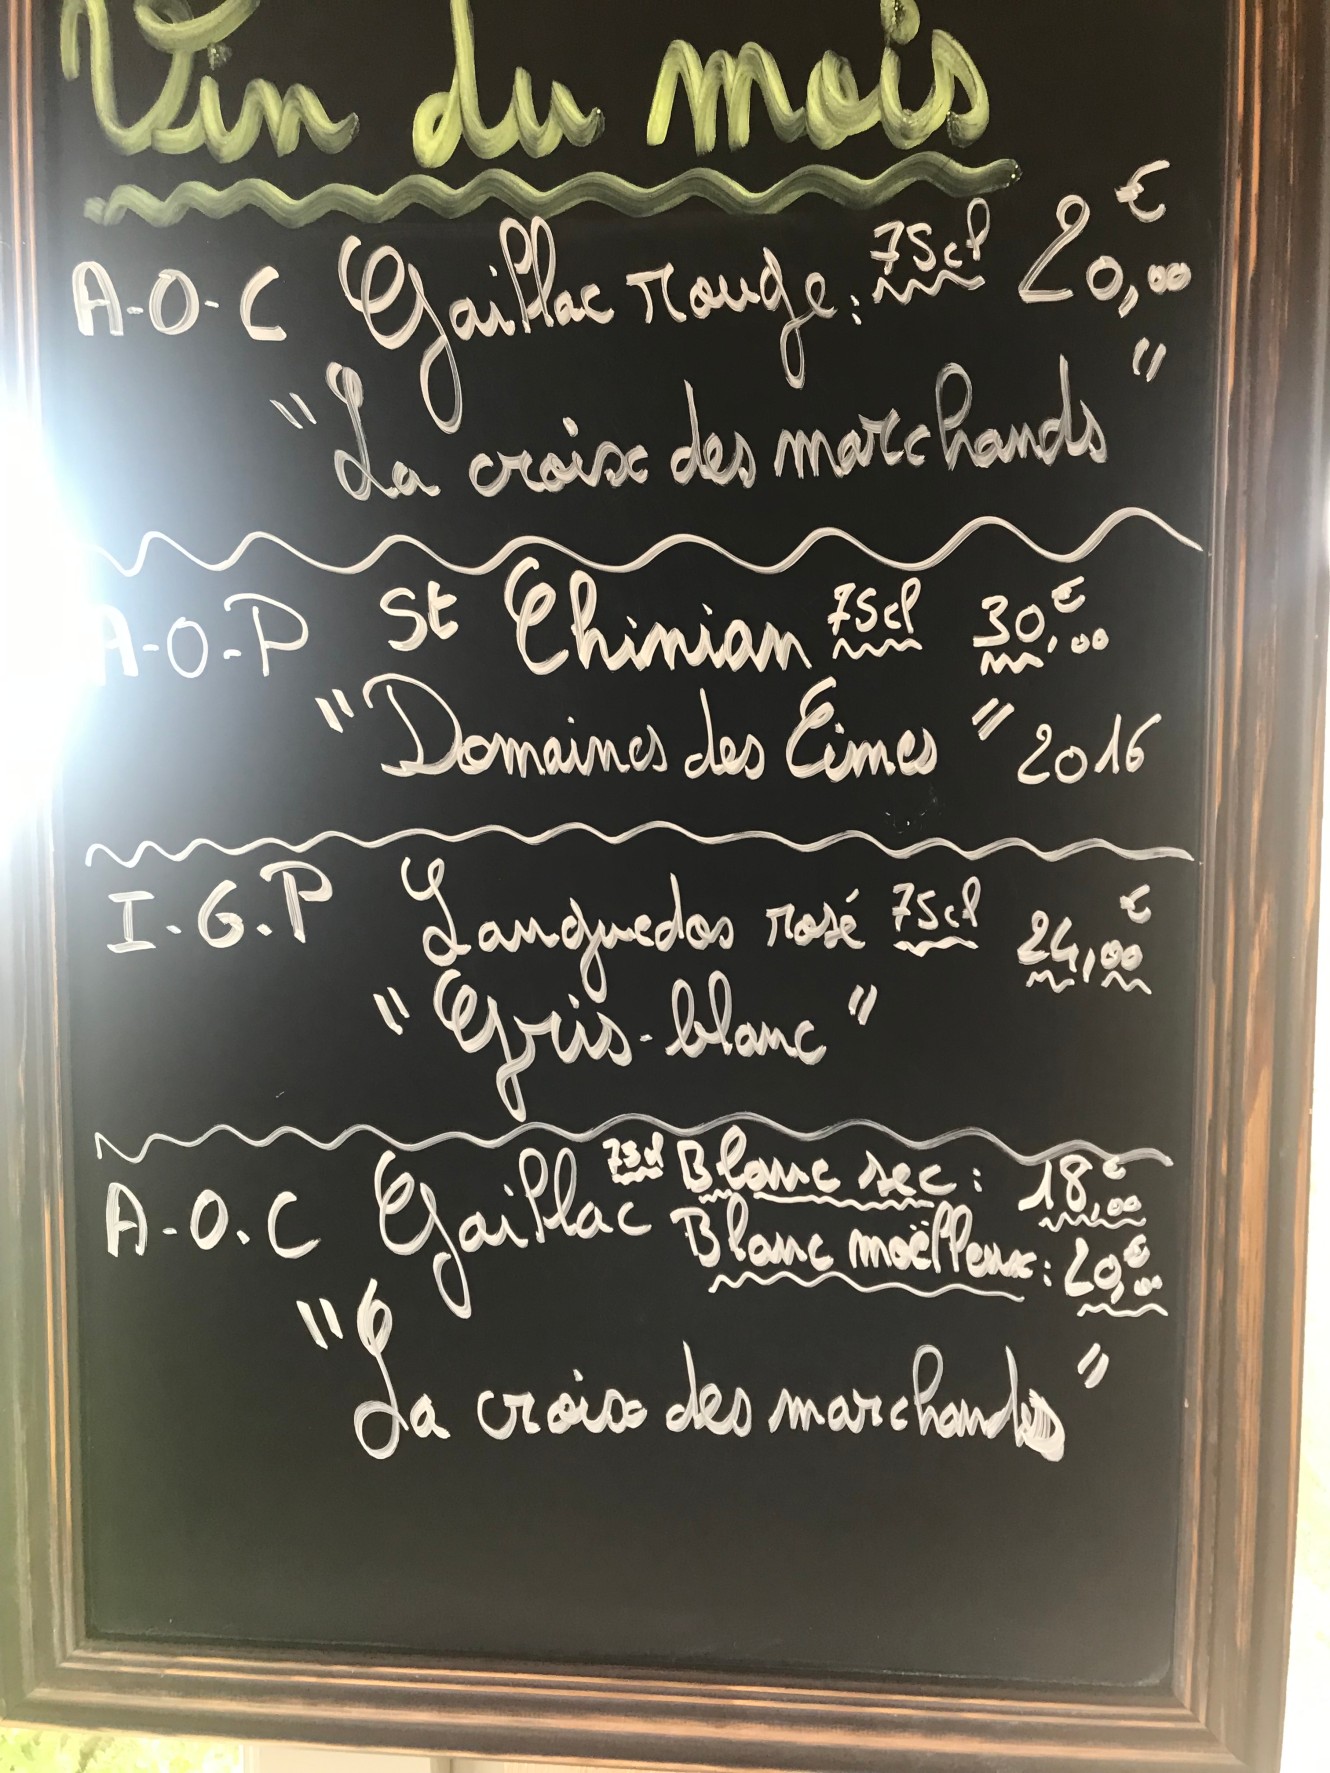 Vin du mois
A-O-C Gaillac rouge: 75cl 20,00€
"La croix des marchands"
A-O-P St Chinian 75cl 30,00€
"Domaines des Eimes" 2016
I.G.P Languedos rosé 75cl 24,00€
"Gris-blanc"
A-O.C Gaillac 75cl Blanc sec: 18,00€
Blanc moëlleux: 20,00€
"La croix des marchands"